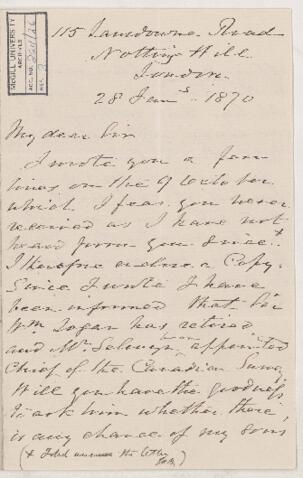 McGILL UNIVERSITY
ARCHIVES
ACC. NO.
REF.
115 Lansdowne Road
Notting Hill
London
28 Jany. 1870
My dear Sir
I wrote you a few
lines on the 9 October
which I fear you never
received as I have not
heard from you since +
I therefore enclose a Copy.
Since I wrote I have
been informed that Sir
Wm Logan has retired
and Mr. Selwyn been appointed
Chief of the Canadian Survey
Will you have the goodness
to ask him whether there
is any chance of my sons
(+ I did answer the letter